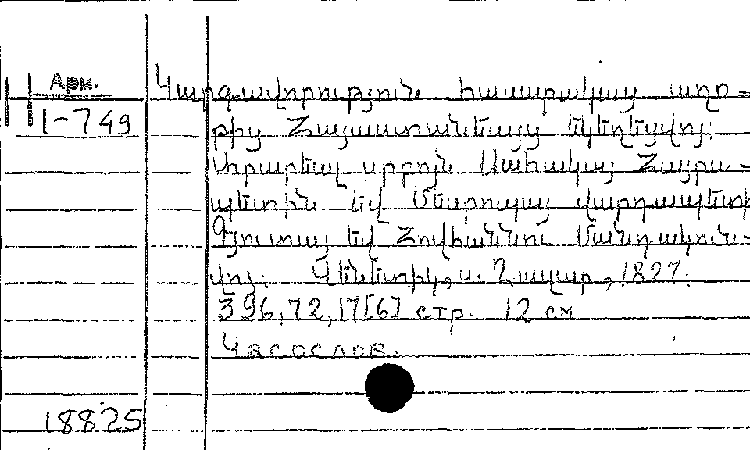 Арм.
I-749
Կարգաւորութիւն հասարակաց աղօ-
թից Հայաստանեայց եկեղեցվոյ:
Արարեալ սրբոյն Սահակայ Հայրա-
պետին եվ Մեսրոպայ վարդապետի
Գյուտայ եվ Հովհաննու Մանդակունե-
վոյ: Վենետիկ, ս. Ղազար, 1827.
396, 72, 17[6] стр. 12 см
Часослов.
18825